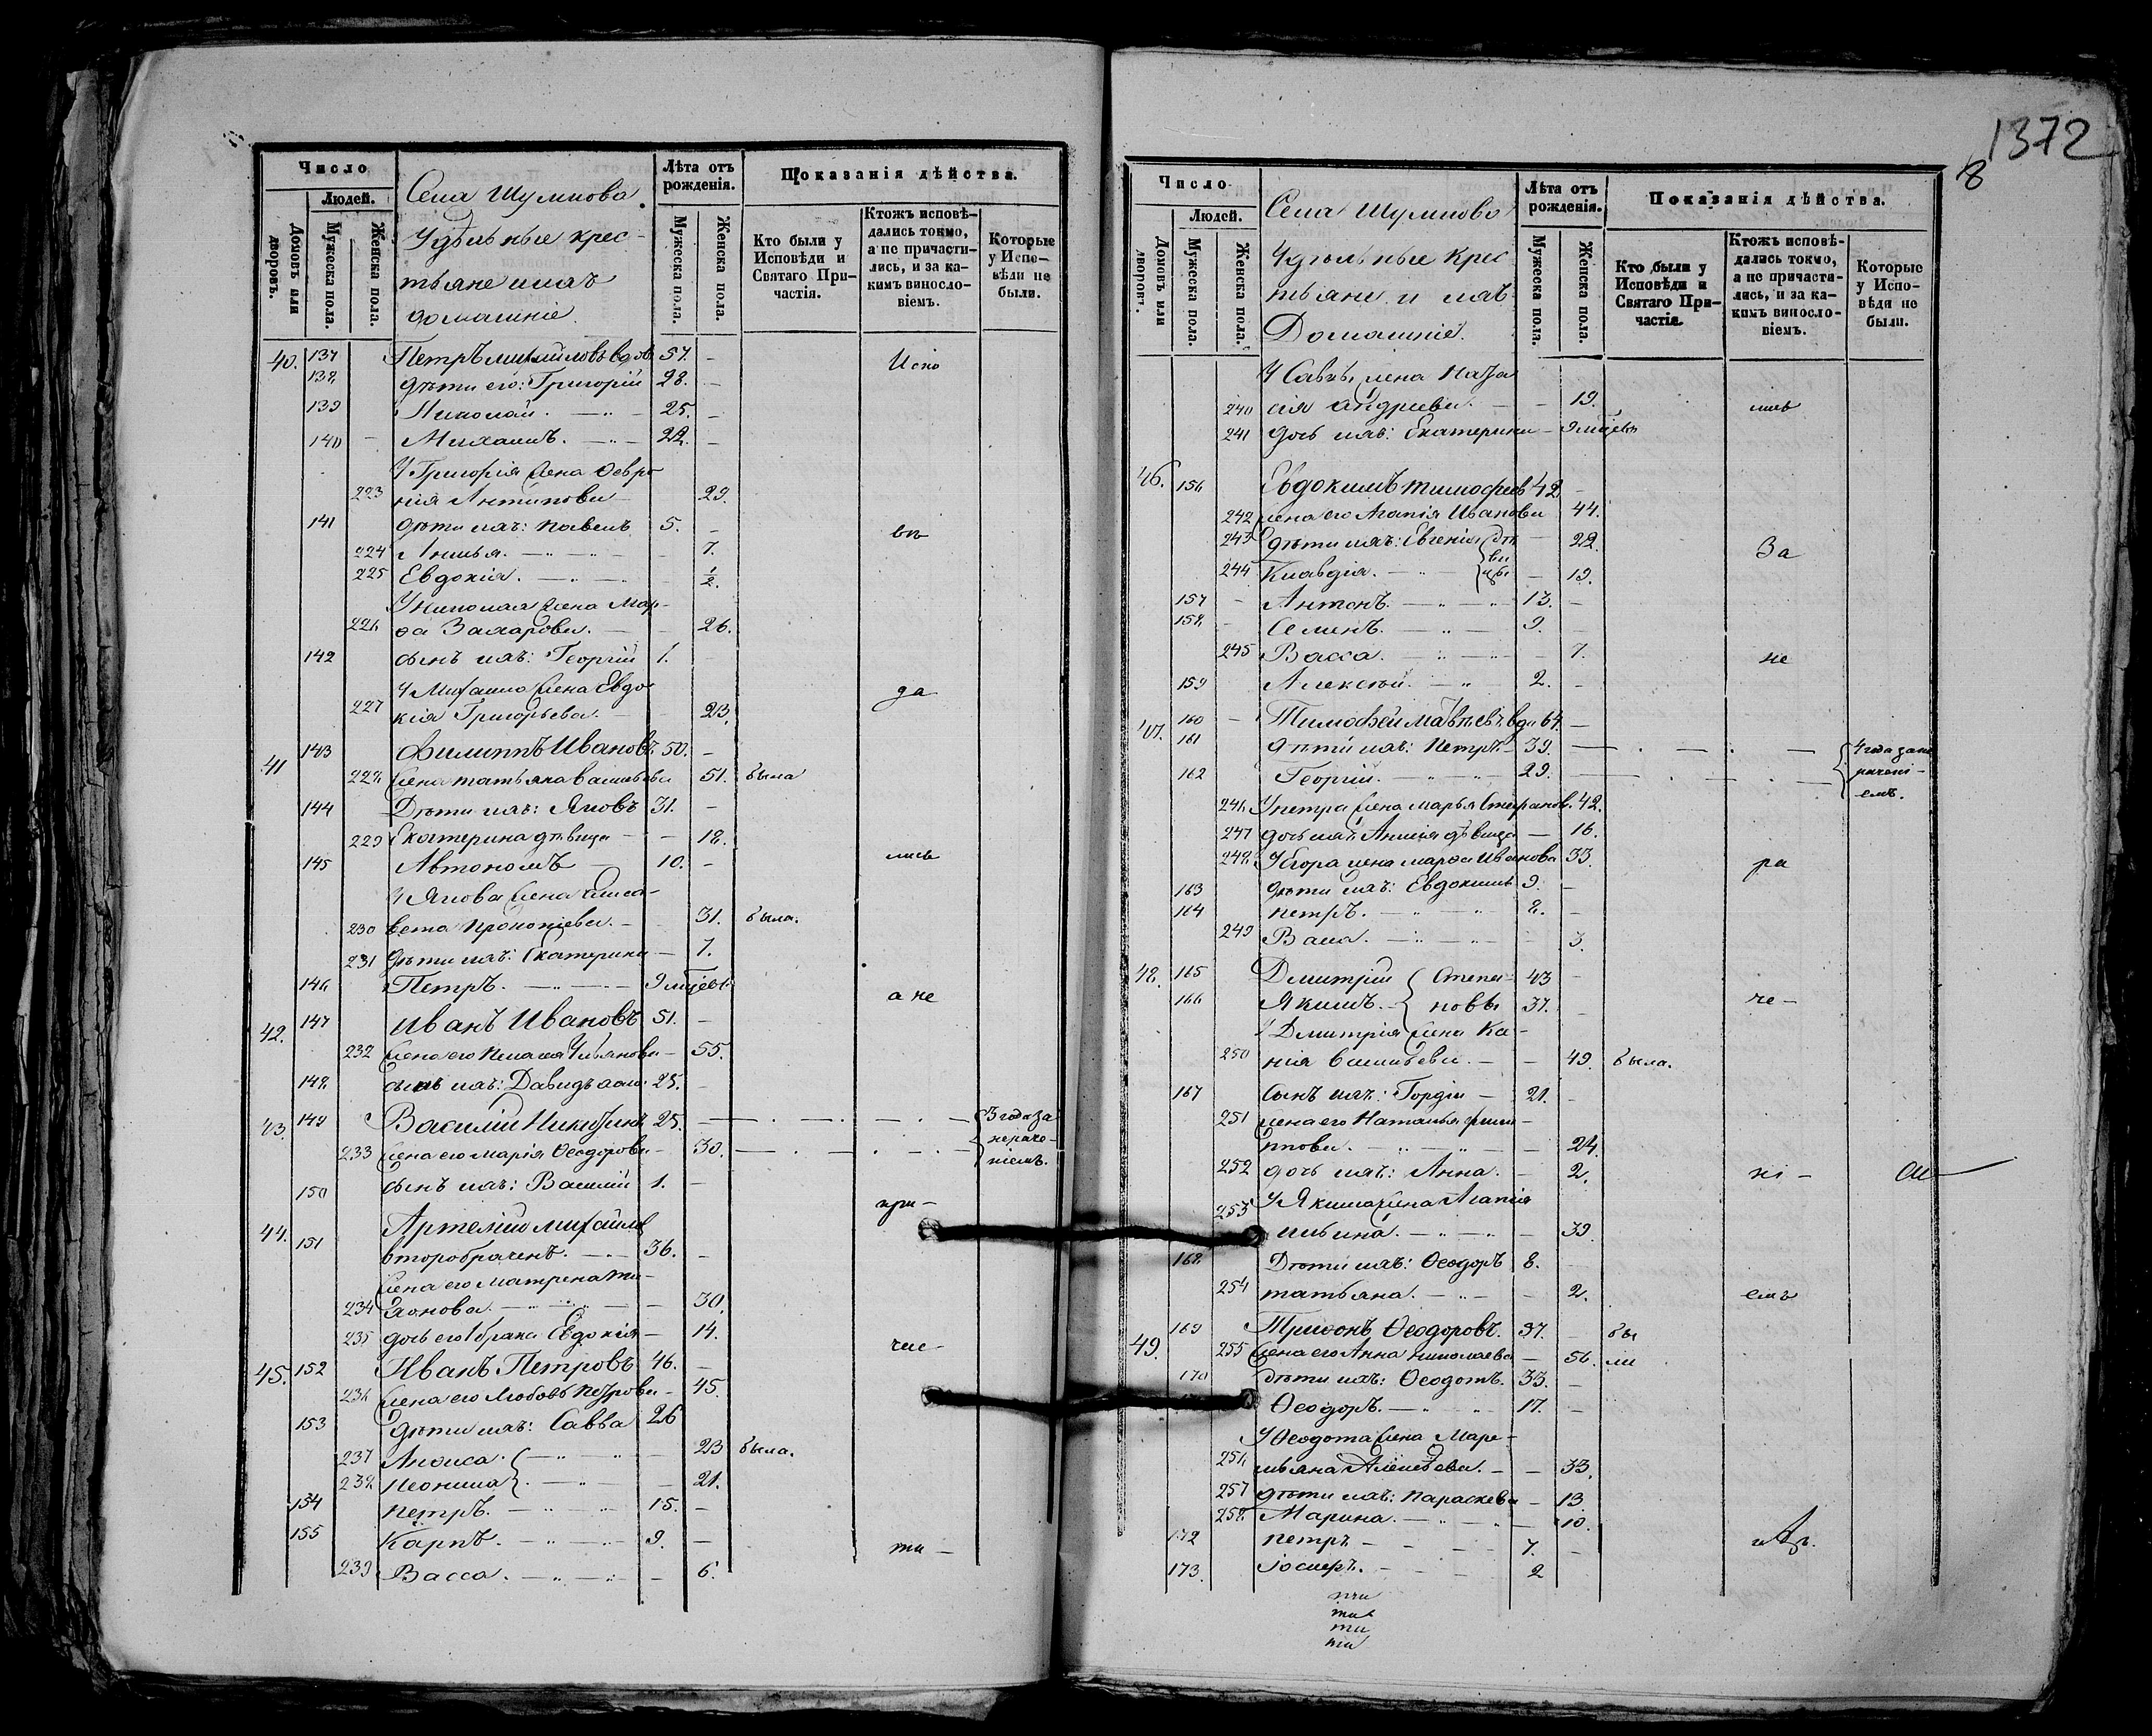 1372
8
Число
Людей.
Домовъ или дворовъ.
Мужеска пола.
Женска пола.
Села Шумнова.
Удѣльные крес-
тьяне и ихъ
домашніе.
Лѣта отъ рожденія.
Мужеска пола.
Женска пола.
Показанія дѣйства.
Кто были у Исповѣди и Святаго При-частія.
Ктожъ исповѣ-дались токмо, а не причасти-лись, и за ка-кимъ виносло-віемъ.
Которые у Испо-вѣди не были.
40. 137 Петръ Михайловъ вдов. 57. - Испо
138 дѣти его: Григорій 28. -
139 Николай. 25. -
140 - Михаилъ. 22. -
У Григорія жена Февро
223 нія Антипова 29.
141 дѣти ихъ: Павелъ 5. - вѣ
224 - 7.
225 Евдокія. - ½
У Николая жена Мар-
226 ѳа Захарова. - 26.
142 сынъ ихъ: Георгій 1. -
У Михаила жена Евдо- да
227 кія Григорьева. - 23.
41 143 Филиппъ Ивановъ. 50. -
228 жена Татьяна Васильева 51. была
144 Дѣти ихъ: Яковъ 31. -
229 Екатерина дѣвица - 18.
145 Автономъ 10. - лись
У Якова жена Елиса-
230 вета Прокопіева. - 31. была.
231 дѣти ихъ: Екатерина - 7.
146 Петръ. 9 мѣсяцевъ а не
42. 147 Иванъ Ивановъ 51. -
232 жена его Пелагея Ульянова - 55.
148 сынъ ихъ: Давидъ 25. -
43. 149 Василій Никитинъ 25. {3 года за
233 жена его Марія Ѳеодорова - 30. нераче-
ніемъ.
150 сынъ ихъ: Василій 1. -
при-
44. 151 Артемій Михайловъ
второбраченъ. 36. -
жена его Матрена Ти-
234 хонова. - 30.
235 дочь его 1 брака Евдокія - 14. час-
45. 152 Иванъ Петровъ 46. -
236 жена его Любовь Петрова - 45.
153 дѣти ихъ: Савва 26
237 Анѳиса. - 23 была.
238 Леонила - 21.
154 Петръ. 15. -
155 Карпъ. 9. - ти-
239 Васса. - 6.
Число
Людей.
Домовъ или дворовъ.
Мужеска пола.
Женска пола.
Села Шумнова
Удѣльные крес
тьяне и ихъ
Домашніе.
Лѣта отъ рожденія.
Мужеска пола.
Женска пола.
Показанія дѣйства.
Кто были у Исповѣди и Святаго При-частія.
Ктожъ исповѣ-дались токмо, а не причасти-лись, и за ка-кимъ виносло-віемъ.
Которые у Испо-вѣди не были.
У Саввы жена Ната
240 лія Андреева. - 19. лись
241 дочь ихъ: Екатерина - 9 мѣсяцевъ
46. 156 Евдокимъ Тимофеевъ 42 -
242 жена его Агапія Иванова 44.
243 дѣти ихъ: Евгенія {дѣ - 22. За
244 Клавдія. ви цы - 19.
157 - Антонъ. 13. -
158 - Семенъ. 9. -
245 Васса. - 7. не
159 Алексѣй. 2. -
47. 160 - Тимофей Матвѣевъ вд. 64. -
161 дѣти ихъ: Петръ 39. {4 года за не
162 Георгій. 29. рачені-
емъ.
246 У Петра жена Марья Стефанов. 42.
247 дочь ихъ Анисія дѣвица - 16.
248 У Егора жена Марѳа Иванова 33. ра
163 дѣти ихъ: Евдокимъ 9. -
164 Петръ. 8. -
249 Васса. - 3.
48. 165 Дмитрій {Степа- 43 -
166 Якимъ. новы 37. - че-
У Дмитрія жена Ксе-
250 нія Васильева. - 49. была.
167 Сынъ ихъ: Гордій - 21. -
251 жена его Наталья Фили-
ппова. - 24.
252 дочь ихъ: Анна. - 2. ні-
253 У Якима жена Агапія
Ильина. - 39.
168 Дѣти ихъ: Ѳеодоръ 8. -
254 Татьяна. - 2. емъ
49. 169 Трифонъ Ѳеодоровъ. 37. - бы
255 жена его Анна Николаева - 56. ли
170 дѣти ихъ: Ѳеодотъ. 33. -
Ѳеодоръ. 17. -
У Ѳеодота жена Маре-
256 мьяна - 33.
257 дѣти ихъ: Параскева - 13
258 Марина. - 10.
172 Петръ - 7. -
173. Іосифъ. 2